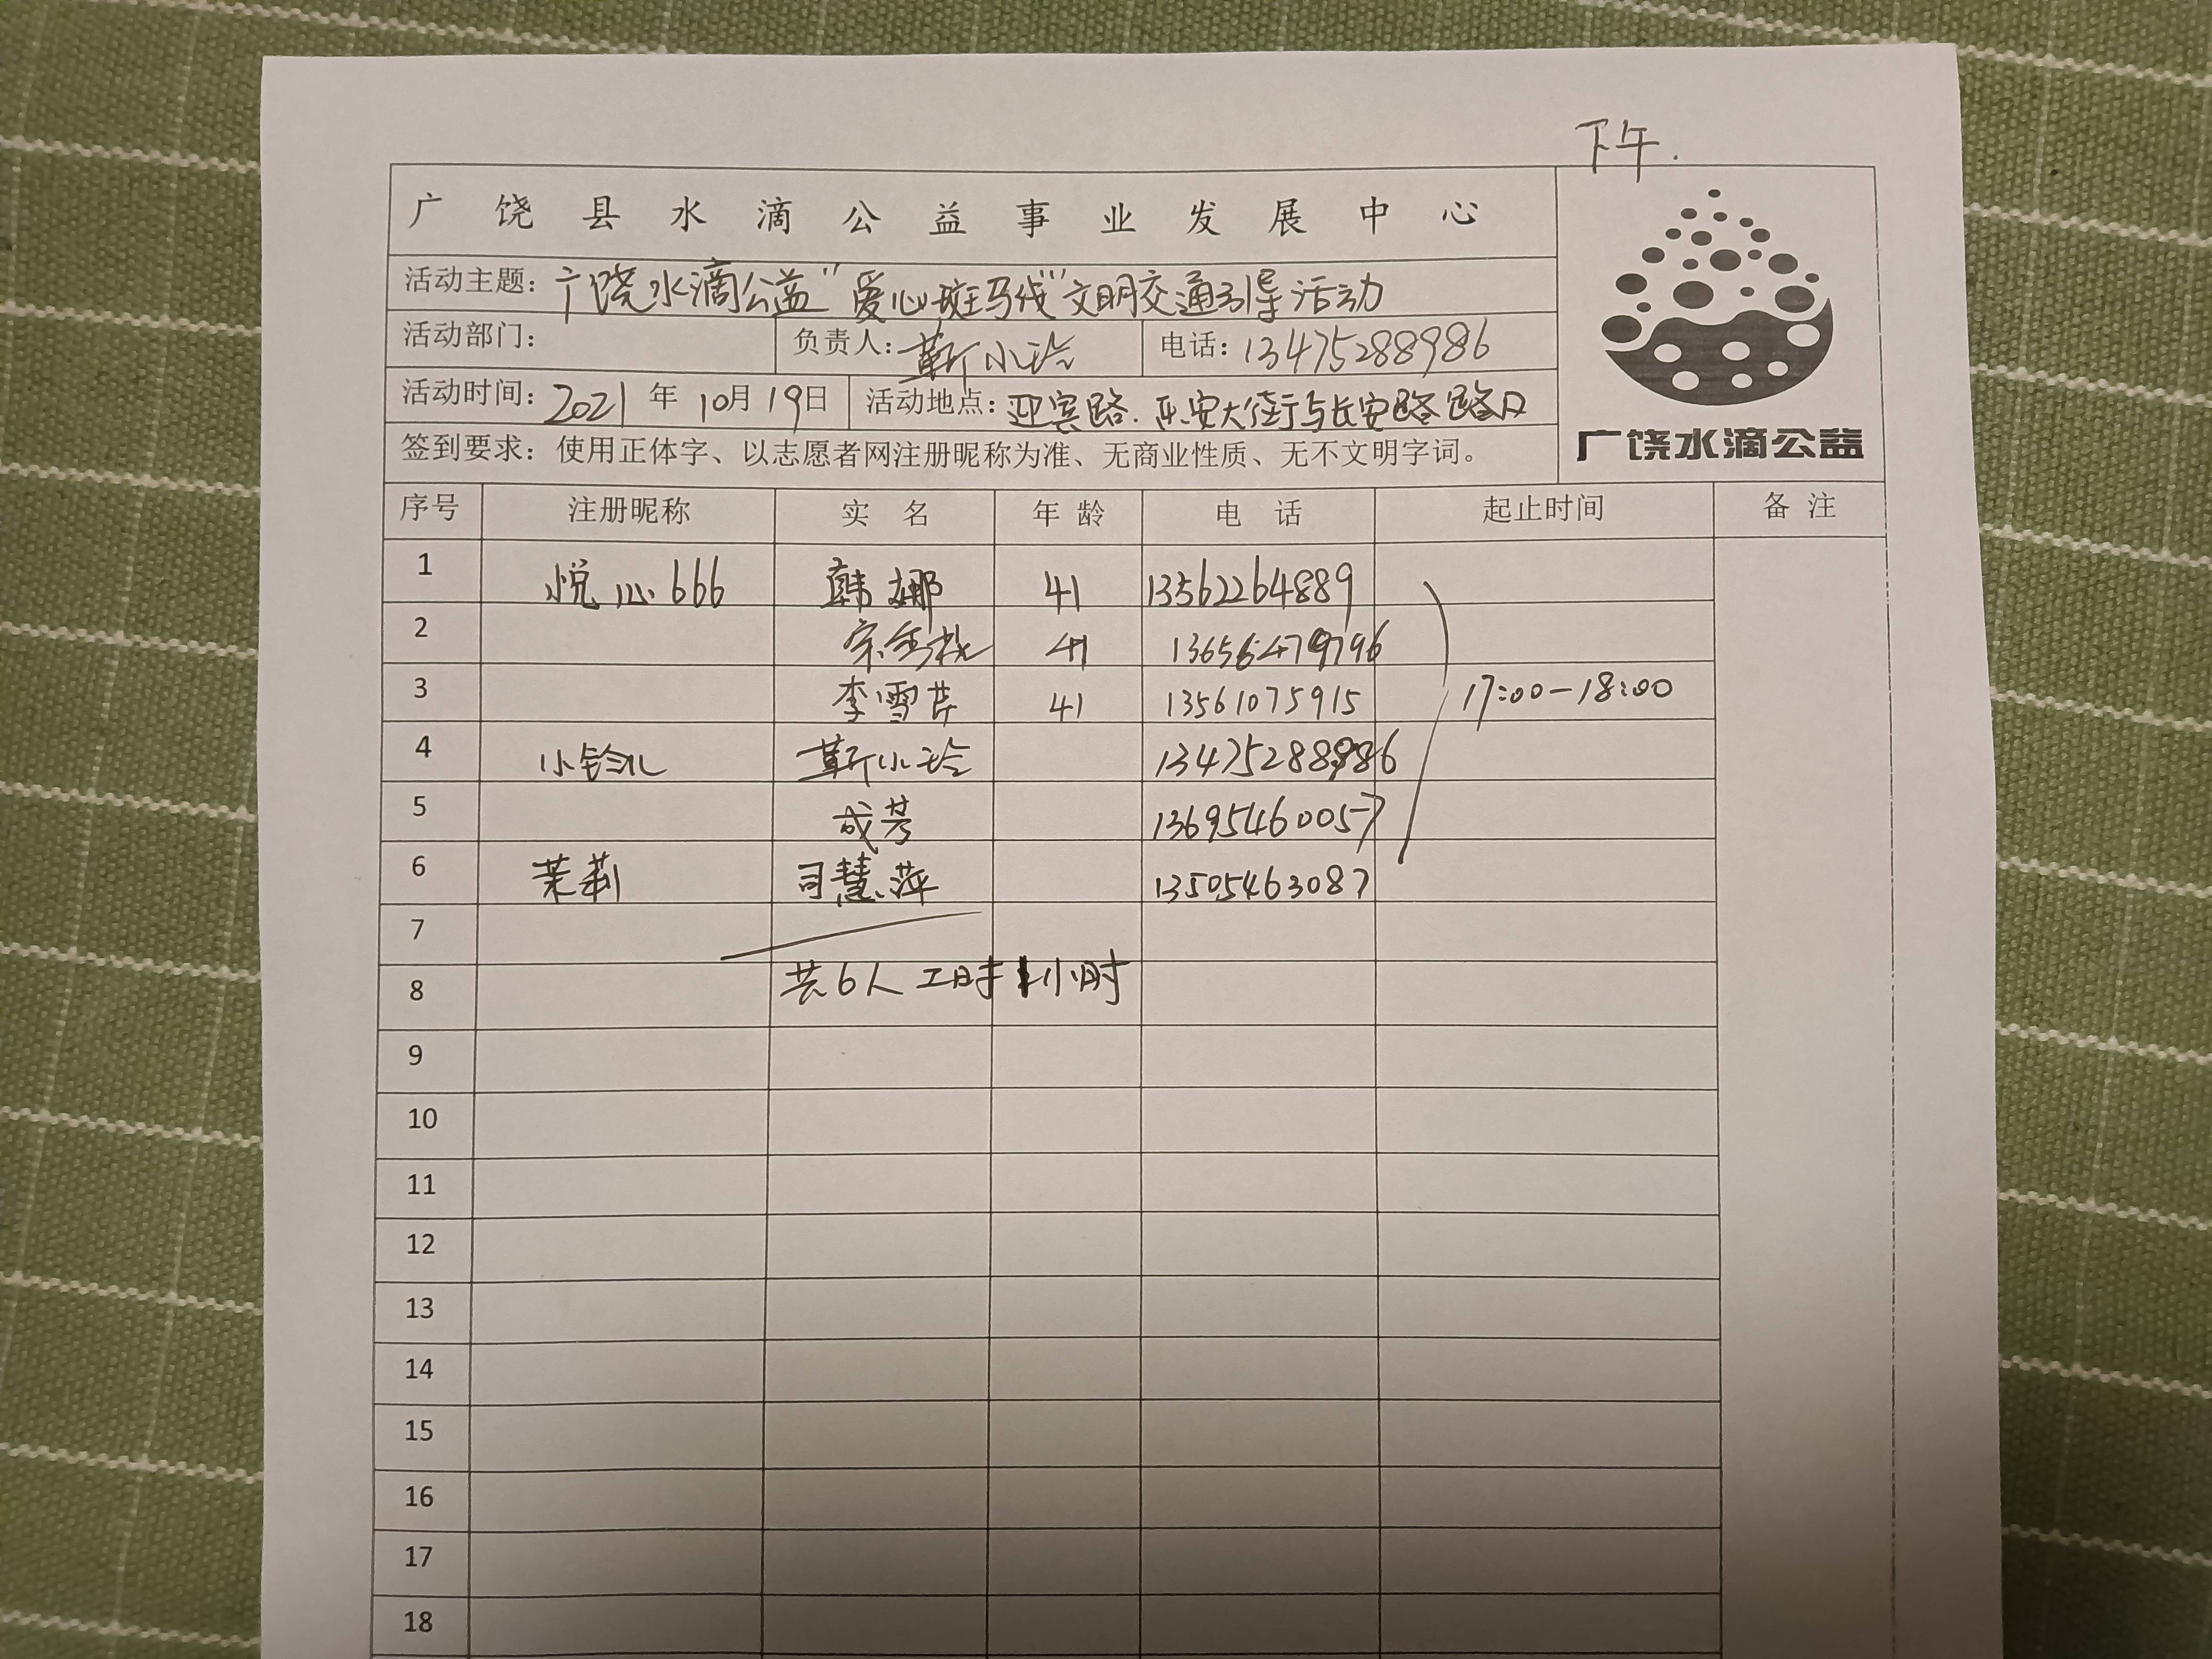 下午.
广饶县水滴公益事业发展中心
活动主题：广饶水滴公益"爱心斑马线"文明交通引导活动
活动部门： 负责人：靳小玲 电话：13475288986
活动时间：2021年10月19日 活动地点：迎宾路.乐安大街与长安路路口
广饶水滴公益
签到要求：使用正体字、以志愿者网注册昵称为准、无商业性质、无不文明字词。
序号 注册昵称 实名 年龄 电话 起止时间 备注
1 悦心666 韩娜 41 13562264889
2 41 13656479796
3 李雪芹 41 13561075915 17:00-18:00
4 小铃儿 靳小玲 13475288986
5 成芳 13695460057
6 茉莉 司慧萍 13505463087
7
8 共6人 工时1小时
9
10
11
12
13
14
15
16
17
18